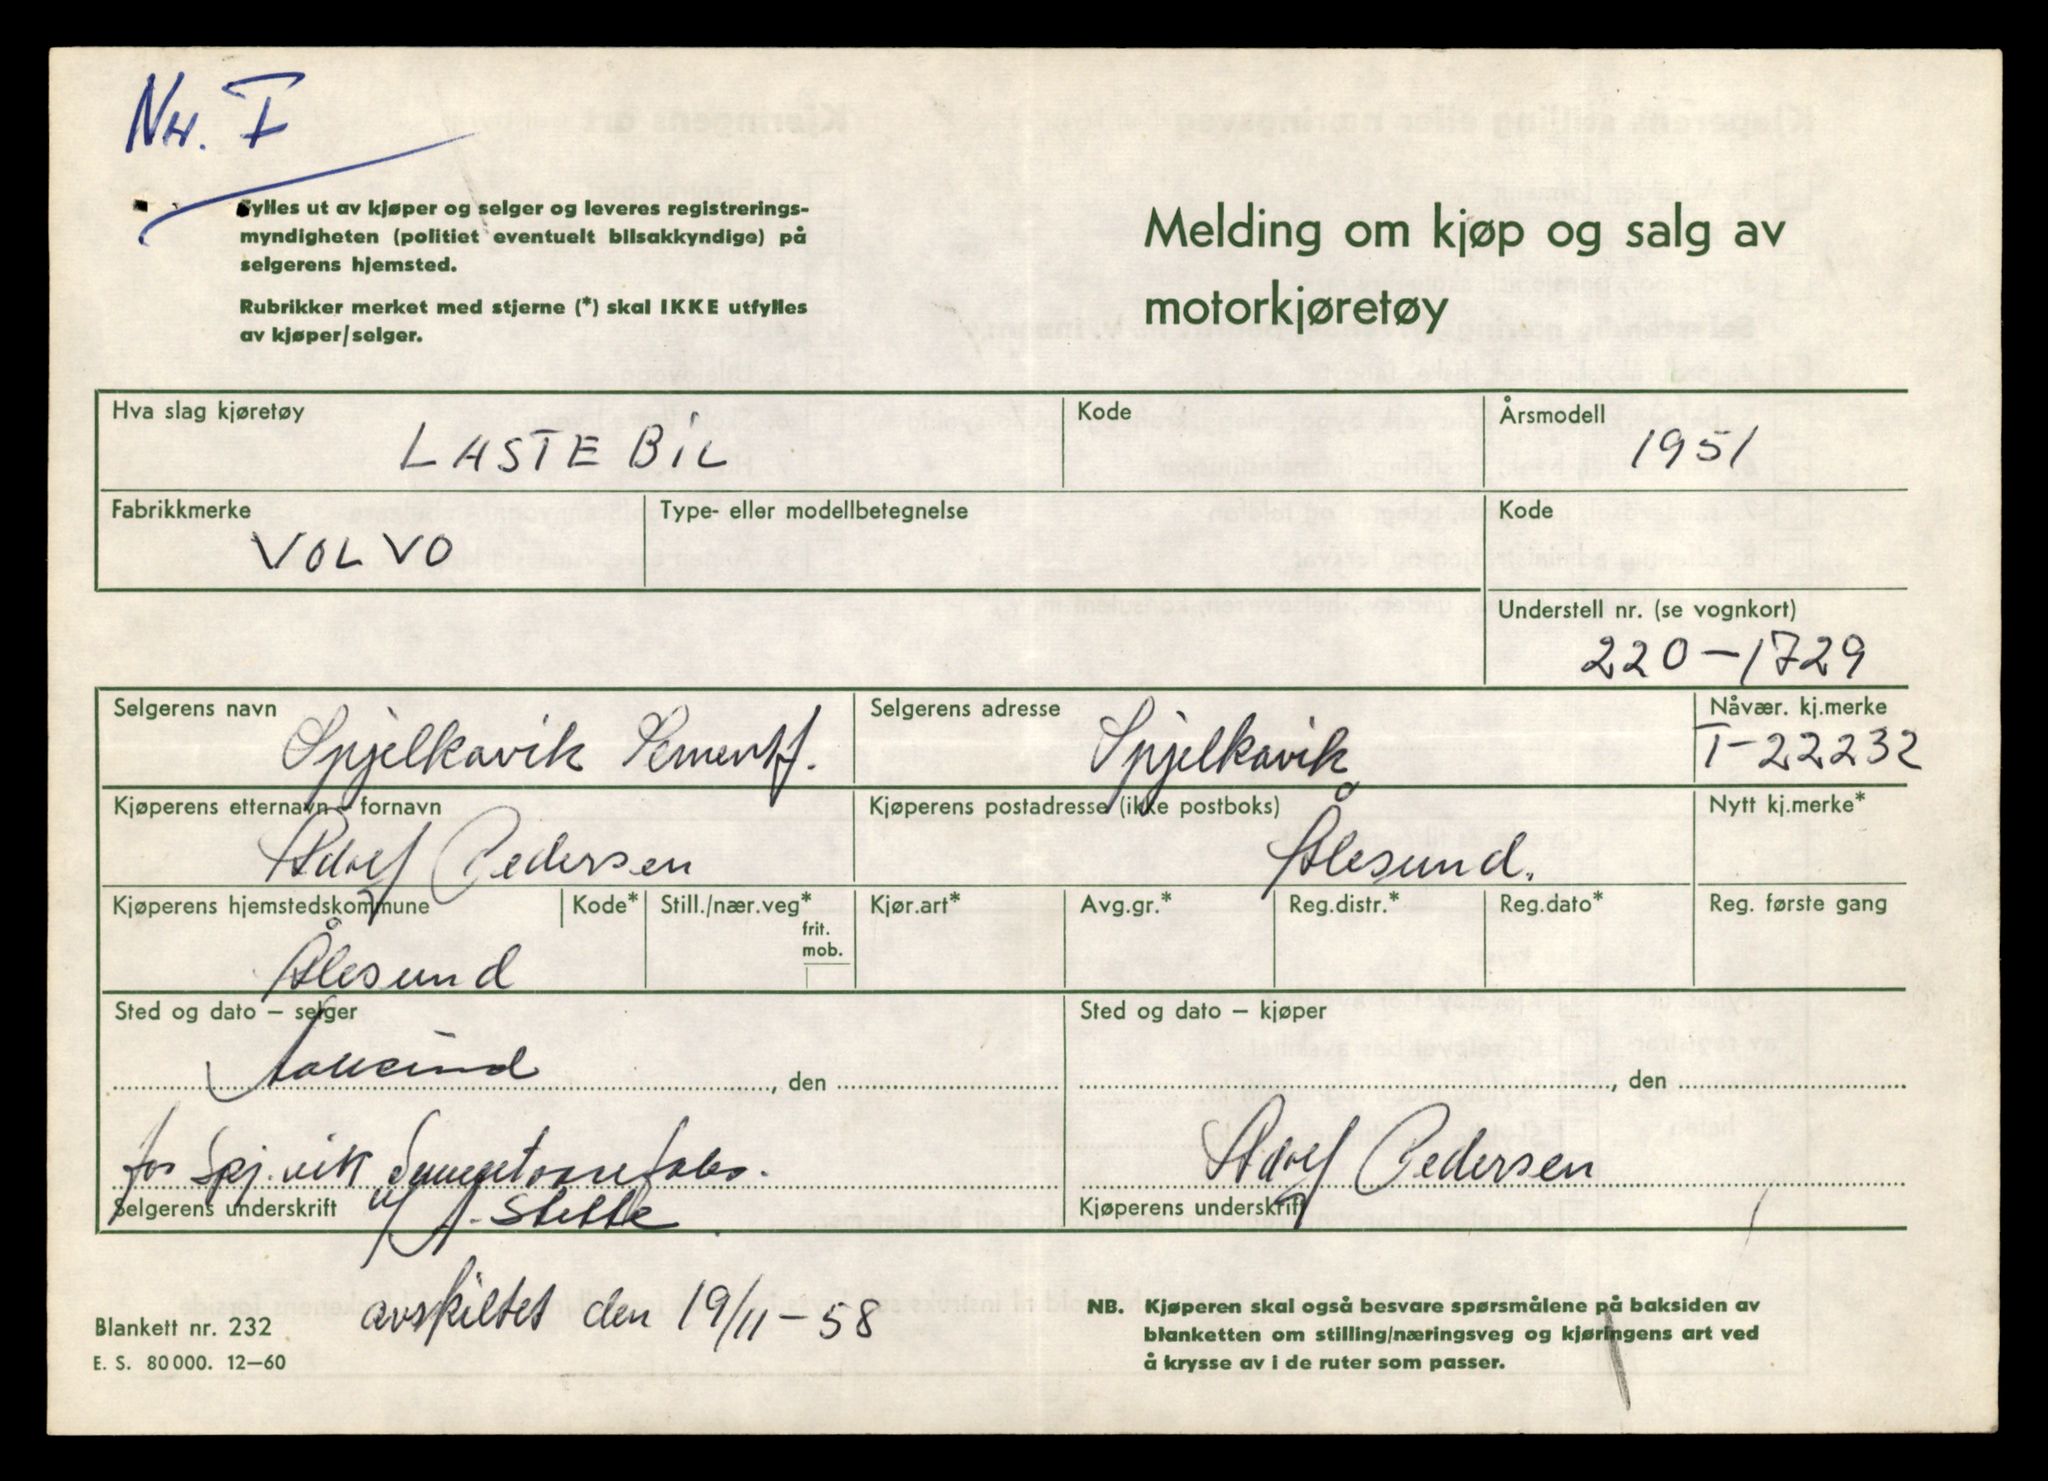 Nr. I
Fylles ut av kjøper og selger og leveres registrerings-
myndigheten (politiet eventuelt bilsakkyndige) på
selgerens hjemsted.
Rubrikker merket med stjerne (*) skal IKKE utfylles
av kjøper/selger.
Melding om kjøp og salg av
motorkjøretøy
Hva slag kjøretøy
LASTEBIL
Kode
Årsmodell
1951
Fabrikkmerke
VOLVO
Type- eller modellbetegnelse
Kode
Understell nr. (se vognkort)
220-1729
Selgerens navn
Spjelkavik Sementf.
Selgerens adresse
Spjelkavik
Nåvær. kj.merke
T-22232
Kjøperens etternavn - fornavn
Adolf Pedersen
Kjøperens postadresse (ikke postboks)
Ålesund.
Nytt kj.merke*
Kjøperens hjemstedskommune
Ålesund
Kode*
Still./nær.veg*
frit.
mob.
Kjør.art*
Avg.gr.*
Reg.distr.*
Reg.dato*
Reg. første gang
Sted og dato – selger
Aalesund
, den
for Spj.vik
Selgerens underskrift
Sted og dato – kjøper
, den
Adolf Pedersen
Kjøperens underskrift
avskiltet den 19/11-58
Blankett nr. 232
E. S. 80000. 12-60
NB. Kjøperen skal også besvare spørsmålene på baksiden av
blanketten om stilling/næringsveg og kjøringens art ved
å krysse av i de ruter som passer.